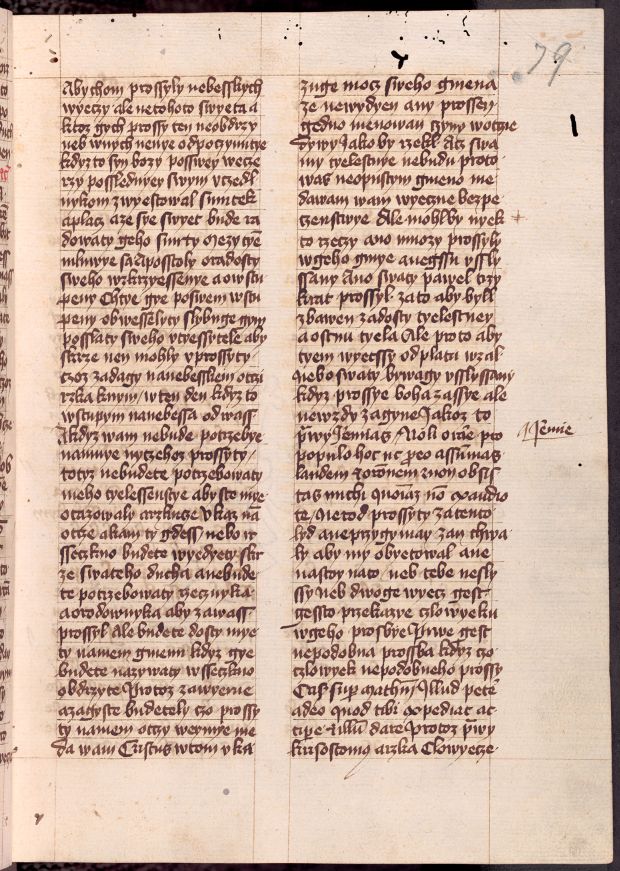 79
Abychom prossyly nebesskych
wyeczy ale ne tohoto swyeta a
ktoz gych prossy ten neobdrzy
neb w nych nenye odpoczynutye
kdyz to syn bozy posswey wecze
rzy poslednyey swym vczedl
nykom zwyestowal smutek
a placz a ze sye swyet bude ra
dowaty geho smrty Mezy tym
mluwye s Aposstoly o radosty
sweho wzkrzyessenye a o wstu
peny Chtye gye posyem wstu
peny obwesselyty slybuge gym
posslaty sweho vtyessytele aby
skrze nen mohly vprossyty
czoz zadagy na nebesskem otczi
rzka k nym w ten den kdyz to
wstupym na nebessa od wass
A kdyz wam nebude potrzebye
na mnye nyczehoz prossyty
totyz nebudete potrzebowaty
meho tyelessenstye abysto mye
otazowaly a rzkucze vkaz nam
otcze a kam ty gdess nebo w
sseczkno budete wyedyety skr
ze swateho ducha a nebude
te potrzebowaty rzecznyka
a orodownyka aby za wass
prossyl Ale budete dosty mye
ty na mem gmenu kdyz gye
budete nazywaty wsseczkno
obdrzyte Protoz zawyernie
a za gyste budeteli czo prossy
ty na mem otczy we gmye me
da wam Cristus w tom vka
zuge mocz sweho gmena
ze ne wydyen any prossen
gedno menowan czyny w otczie
dywy Jako by rzekl Acz s wa
my tyelestnye nebudu proto
was neopustym gmeno me
dawam wam wyeczne bezpe
czenstwye Ale mohl by nyek
to rzeczy ano mnozy prossyly
w geho gmye a negssu vsly
ssany Ano swaty pawel trzy
krat prossyl za to aby byl
zbawen zadosty tyelestney
a ostnu tyela Ale proto aby
tyem wyetssy odplatu wzal
Nebo swaty bywagy vslyssany
kdyz prossye boha za ssye ale
ne wzdy za gyne Jakoz to
prawy Jeremias Noli orare pro
populo hoc nec pro eo assumas
laudem et oracionem et non obsis
tas michi quoniam non exaudio
te Ne rod prossyty za tento
lyd any przygymay zan chwa
ly aby my obyetowal any
nastoy na to neb tebe nesly
ssy Neb dwoge wyecz gest
gessto przekazye czlowyeku
w geho prosbye Prwe gest
nepodobna prossba kdyz czo
czlowyek nepodobneho prossy
Cris super Matheum Illud pete
a deo quod tibi expediat ac
cipere et illum dare Protoz prawy
krisostomus a rzka Clowyecze
Jeremie